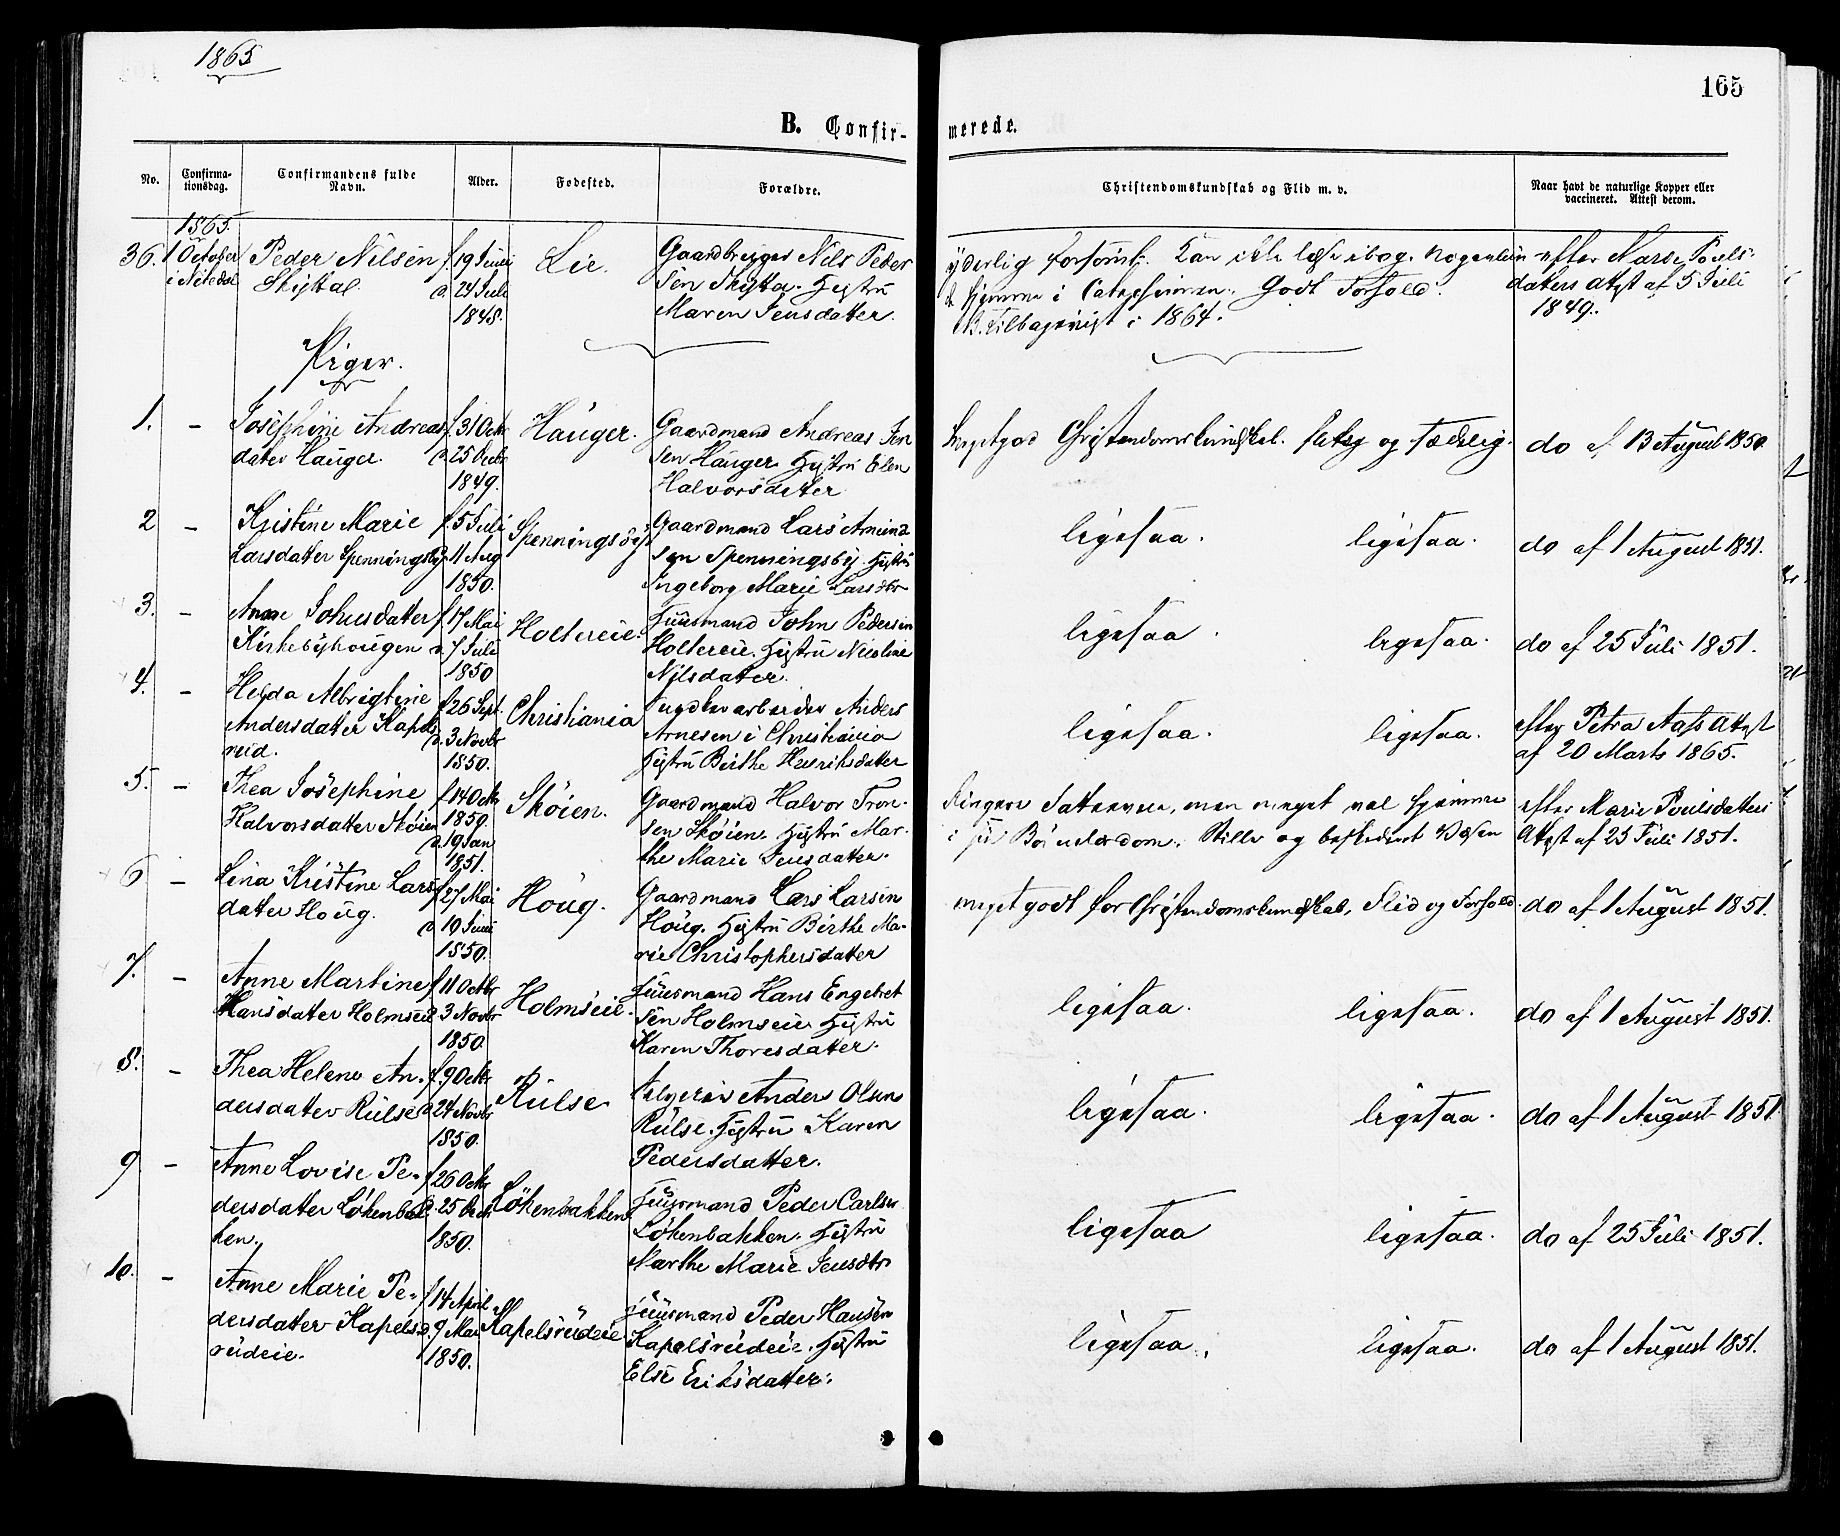 1865
165
B. Confir-
merede.
No.
Confirma-
tionsdag.
Confirmandens fulde
Navn.
Alder.
Fødested.
Forældre.
Christendomskundskab og Flid m. v.
Naar havt de naturlige Kopper eller
vaccineret. Attest derom.
1865.
36. 1 October Peder Nilsen f. 19 Juni Lie. Nils Peder
i d. 24 Juli sen Hustru
1848. Maren Jensdatter.
Kan ikke læse i bog.
i Catechismen. Godt Forhold.
i 1864.
efter Pouls-
datters Attest af 5 Juli
1849.
Piger.
1. - Josephine Andreas- f. 31 Octbr Hauger. Gaardmand Andreas Jen
datter Hauger. d. 25 Decbr sen Hauger. Hustru Elen
1849. Halvorsdatter
meget god Christendomskundskab. flittig og sædelig. do af 13 August 1850.
2 - Kristine Marie f. 5 Juli Spenningsby Gaardmand Lars Amund
Larsdatter Spenningsby d. 11 Aug sen Spenningsby. Hustru
1850. Ingeborg Marie Larsdtr
ligesaa. ligesaa. do af 1 August 1851.
3. - Anne Johnsdatter f. 17 Mai Holtereie. Huusmand John Pedersen
Kirkebyhougen d. 7 Juli Holtereie. Hustru Nicoline
1850 Nilsdatter.
ligesaa. ligesaa. do af 25 Juli 1851.
4. - Helda Albrigtine f. 26 Sept. Christiania Anders
Andersdatter Kapels d. 3 Novbr Arnesen i Christiania
rud. 1850. Hustru Birthe Henriksdatter
ligesaa. ligesaa. efter Petra Aass Attest
af 20 Marts 1865.
5. - Thea Josephine f. 14 Octbr Skøien. Gaardmand Halvor Tron-
Halvorsdatter Skøien 1850. sen Skøien. Hustru Mar-
d. 19 Jan the Marie Jensdatter.
1851.
Ringere Fatteevne, men meget vel hjemme
i sin Børnelærdom. Stille og beskedent Væsen
efter Marie Poulsdatters
Attest af 25 Juli 1851.
6 - Lina Kristine Lars f. 27 Mai Houg. Gaardmand Lars Larsen
datter Houg. d. 19 Juni Houg. Hustru Birthe Ma-
1850. rie Christophersdatter
meget godt for Christendomskundskab, Flid og Forhold. do af 1 August 1851.
7. - Anne Martine f. 11 Octbr Holmseie. Huusmand Hans Engebret
Hansdatter Holmseie d. 3 Novbr sen Holmseie Hustru
1850. Karen Thoresdatter.
ligesaa. ligesaa. do af 1 August 1851.
8. - Thea Helene An- f. 9 Octbr Rulse Anders Olsen
dersdatter Rulse d. 24 Novbr Rulse. Hustru Karen
1850. Pedersdatter.
ligesaa. ligesaa. do af 1 August 1851
9 - Anne Lovise Pe- f. 26 Octbr Løkenbakken Huusmand Peder Carlsen
dersdatter Løkenbak d. 25 Decbr Løkenbakken. Hustru
ken. 1850. Marthe Marie Jensdtr
ligesaa ligesaa. do af 25 Juli 1851.
10. - Anne Marie Pe- f. 14 April Kapelsrudeie Huusmand Peder Hansen
dersdatter Kapels- d. 9 Mai Kapelsrudeie. Hustru
rudeie. 1850. Else Eriksdatter.
ligesaa. ligesaa. do af 1 August 1851.